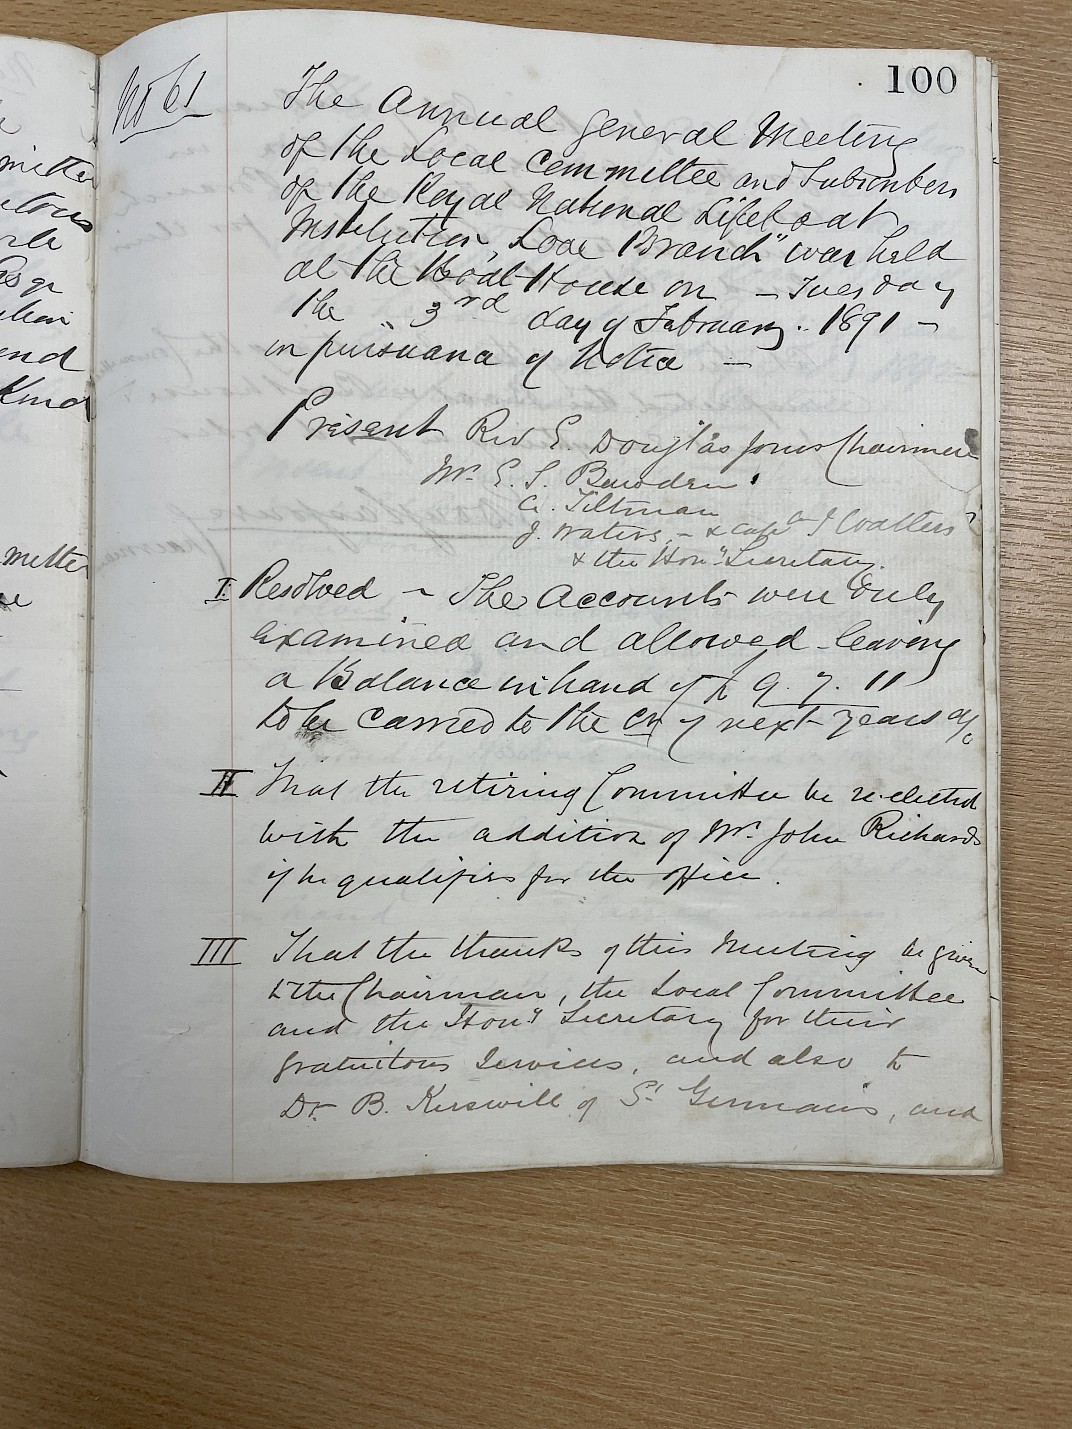 100
No 61
The Annual general Meeting
of the Local Committee and Subscribers
of the Royal National Lifeboat
Institution, Looe Branch" was held
at the Boat House on – Tuesday
the " 3rd day of February. 1891 –
in pursuance of Notice –
Present Revd E. Douglas Jones Chairman
Mr. E. S. Bowden
G. Tiltman
J. Waters, – & Capt
& the Hony Secretary.
I Resolved ~ The Accounts were duly
examined and allowed – leaving
a Balance in hand of £ 9. 7. 11
to be carried to the Cr of next years a/c
II That the retiring Committee be re-elected
with the addition of Mr. John Richards
if he qualifies for the office.
III That the thanks of this Meeting be given
to the Chairman, the Local Committee
and the Hony Secretary for their
gratuitous Services, and also to
Dr. B. Kerswill of St Germans, and
mittee
end
Kind
mittee